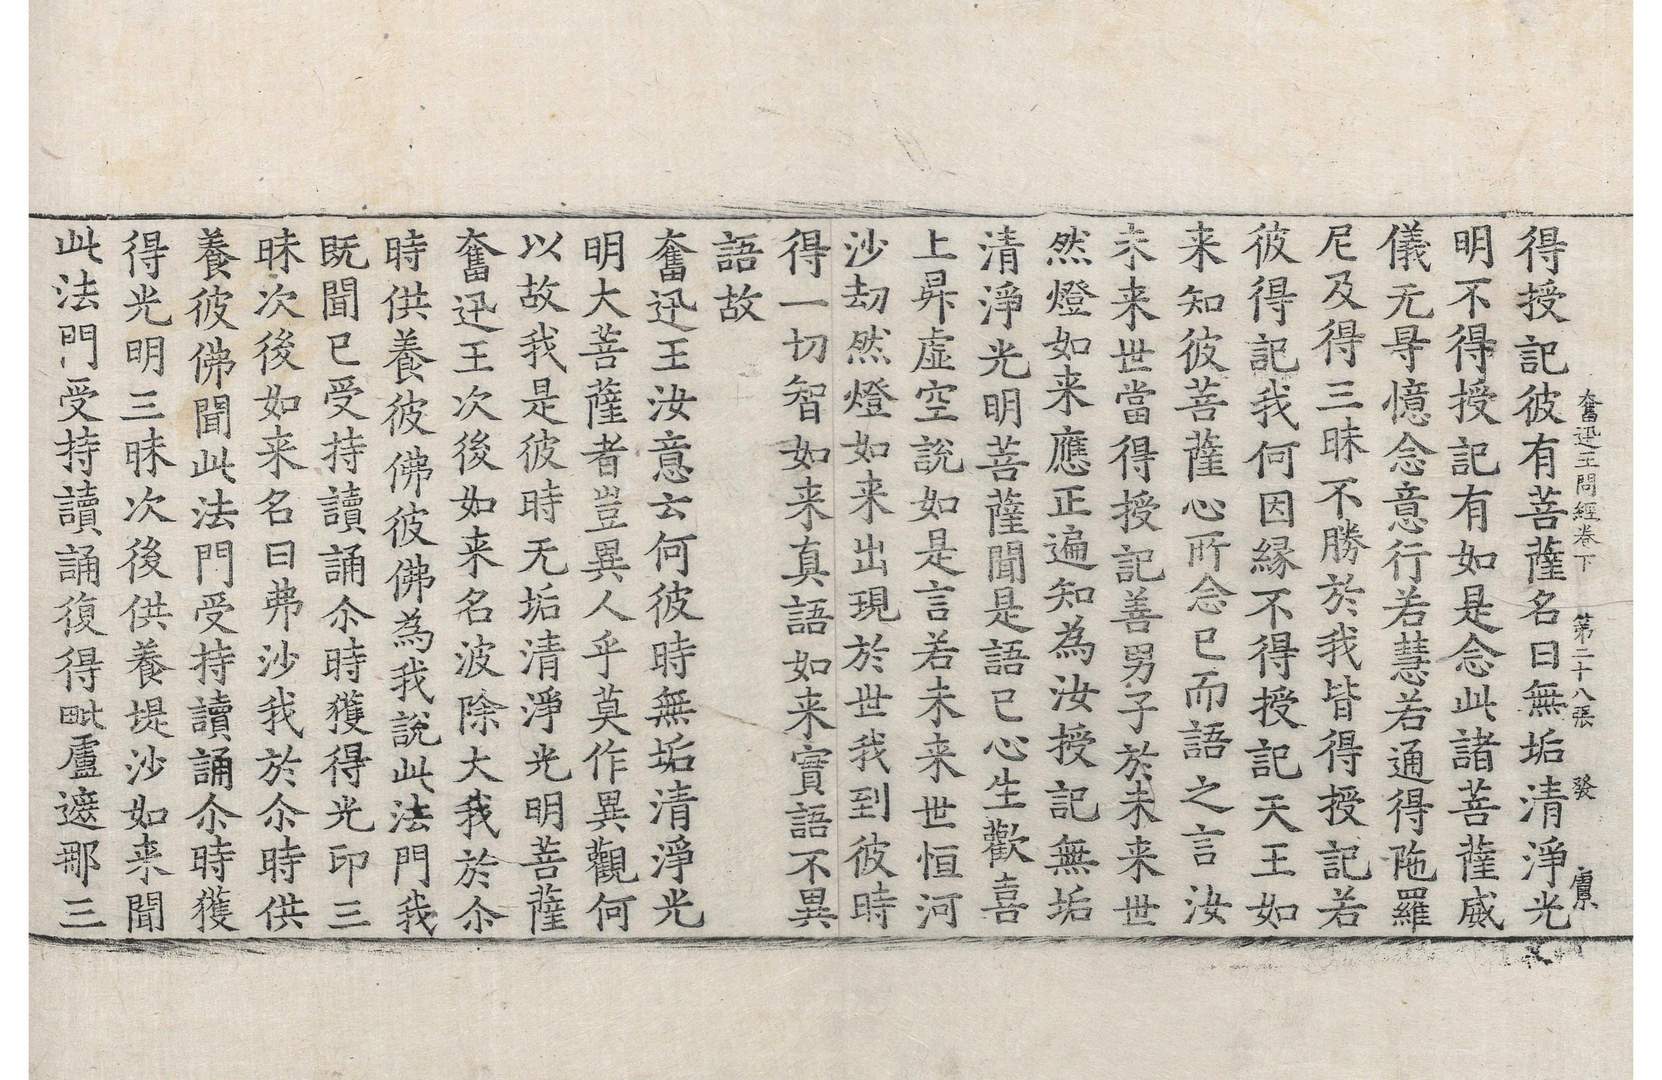 奮迅王問經卷下　第二十八張　發
得授記彼有菩薩名曰無垢清淨光
明不得授記有如是念此諸菩薩威
儀无㝵憶念意行若慧若通得陁羅
尼及得三昧不勝於我皆得授記若
彼得記我何因緣不得授記天王如
来知彼菩薩心所念已而語之言汝
未来世當得授記善男子於未来世
然燈如来應正遍知為汝授記無垢
清淨光明菩薩聞是語已心生歡喜
上昇虛空說如是言若未来世恒河
沙劫然燈如来出現於世我到彼時
得一切智如来真語如来實語不異
語故
奮迅王汝意云何彼時無垢清淨光
明大菩薩者豈異人乎莫作異觀何
以故我是彼時无垢清淨光明菩薩
奮迅王次後如来名波除大我於尒
時供養彼佛彼佛為我說此法門我
既聞已受持讀誦尒時獲得光印三
昧次後如来名曰弗沙我於尒時供
養彼佛聞此法門受持讀誦尒時獲
得光明三昧次後供養堤沙如来聞
此法門受持讀誦復得毗盧遮那三